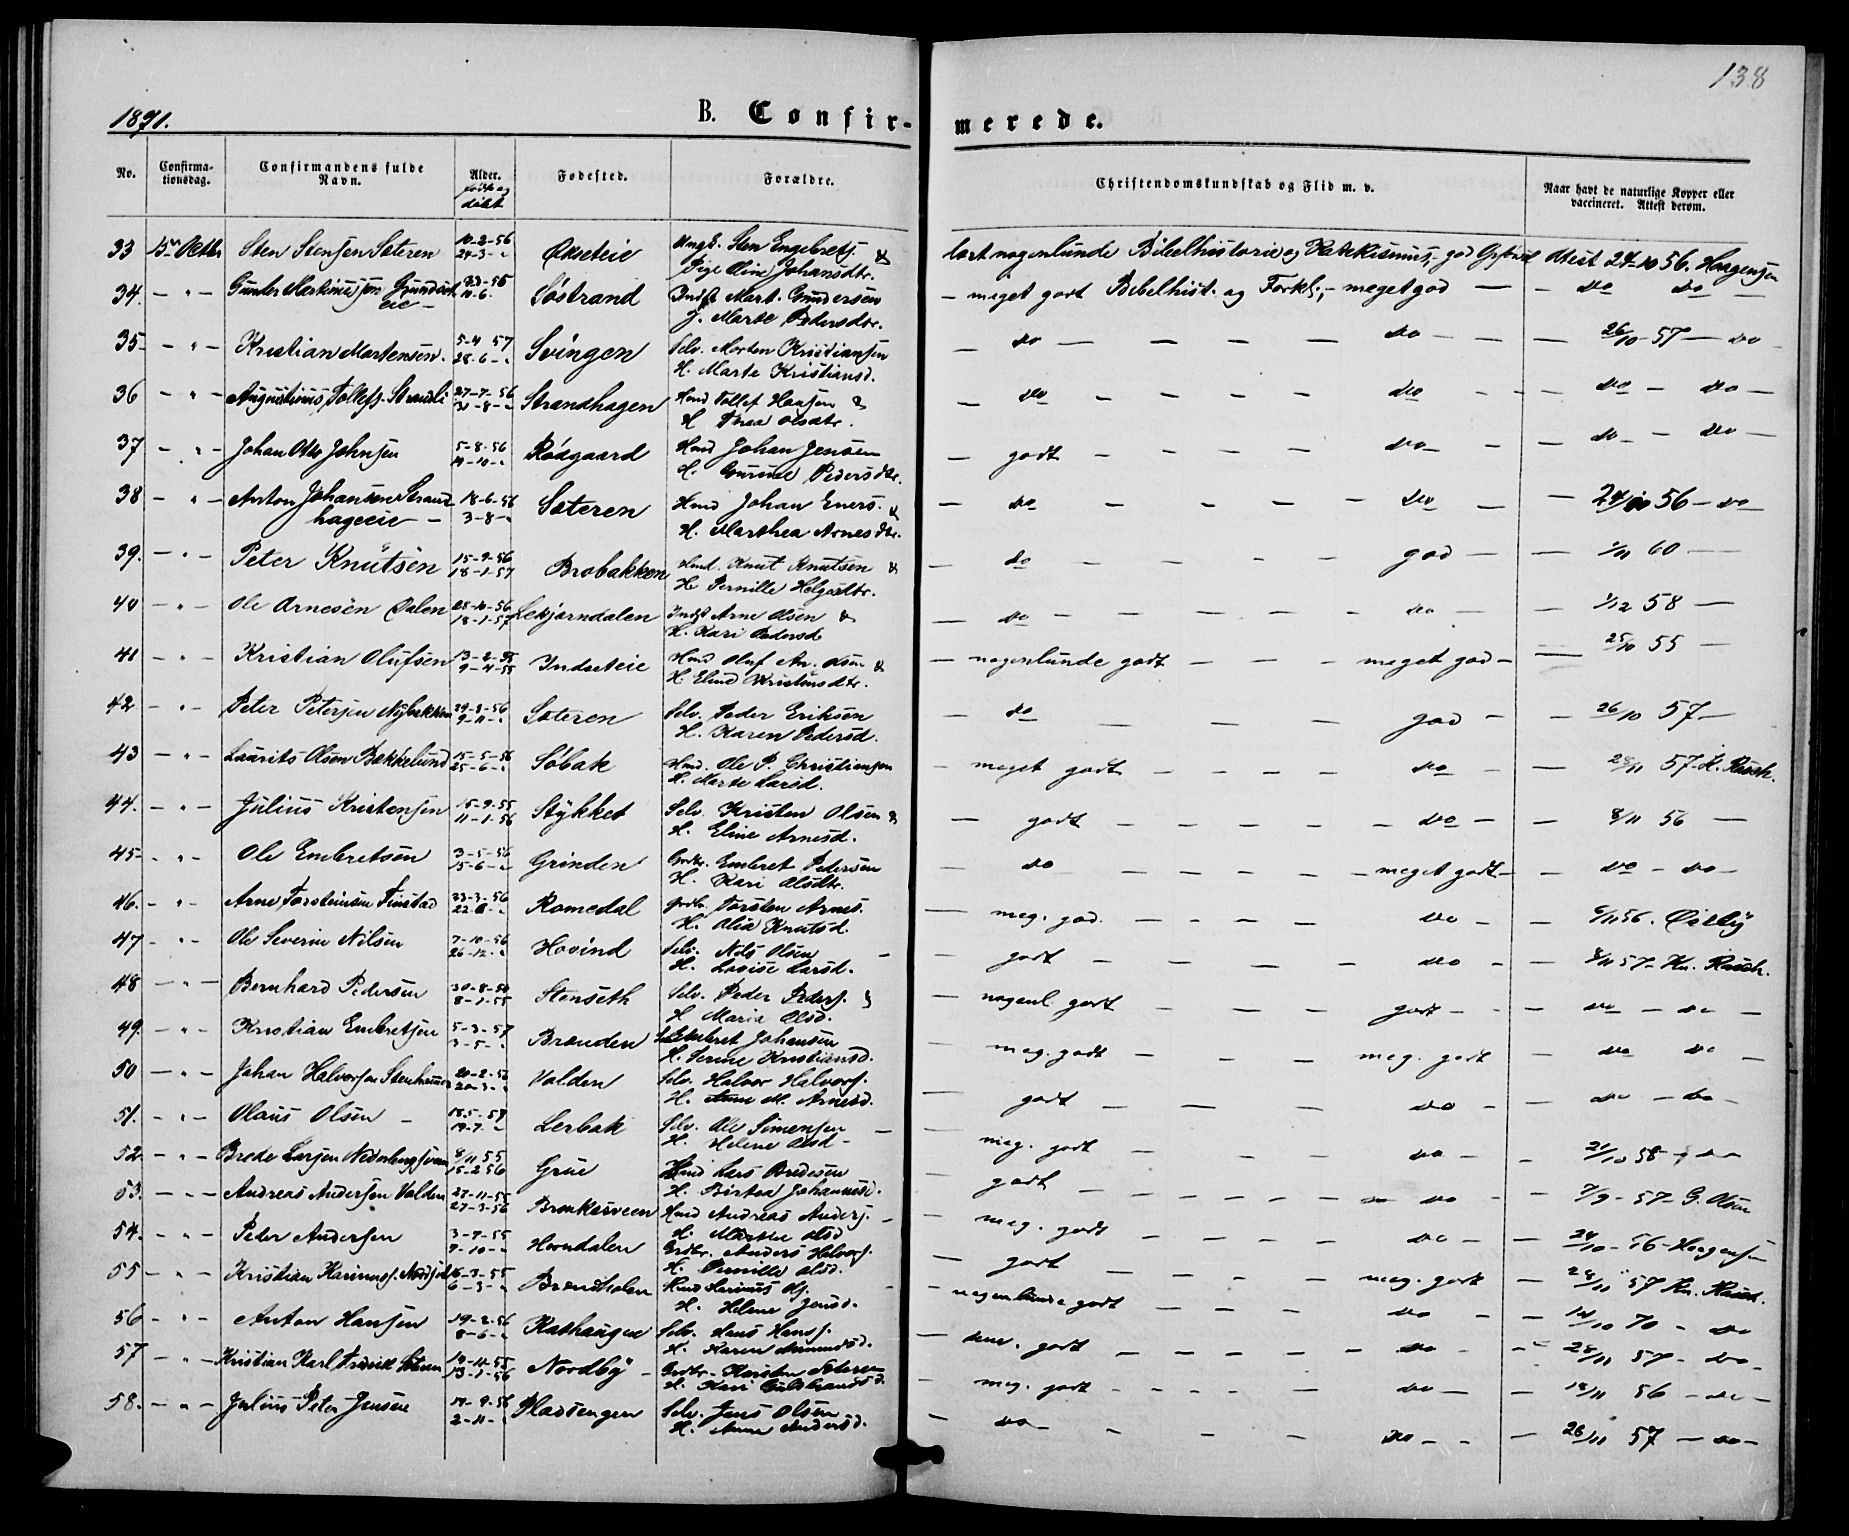 138
1871.
B. Confir-
merede.
No.
Confirma-
tionsdag.
Confirmandens fulde
Navn.
Alder.
født og
døbt
Fodested.
Forældre.
Christendomskundskab og Flid m. v.
Naar havt de naturlige Kopper eller
vaccineret. Attest derom.
33 15de Octbr Sten Stensen Sæteren 10-2-56 Øxseteie Ungk. Sten Engebrets. &
24-3-" Pige Oline Johansdtr.
læst nogenlunde Bibelhistorie og Katekismus, god Attest 24-10 56. Haagensen
34. - " - Gunder Martiniussen Grundset 55 Søstrand Inds Mart. Gundersen
eie - 11-6. Marte Pedersdtr.
- meget godt Bibelhist. og Forkl., - meget god - do do -
35 - " - Kristian Mortensen. 5-4 57 Svingen Selv. Morten Kristiansen
28-6-" H. Marte Kristiansd.
- do - - - - do - - - 26/10-57 - do -
36 - " - Augustinus Tollefs. Strandli 27-7-56 Strandhagen Hmd Tollef Hansen &
31-8-" H. Olsdtr.
- do - - - - do - - - do - do -
37 - " - Johan Otto Johnsen 5-8-56 Rødgaard Hmd Johan Jensen
19-10-" H. Gunnil Pedersdtr.
- godt - - - - do - - - do - - do -
38 - " - Anton Johansen Strand 18-6-56 Sæteren Hmd Johan Eners. &
hageeie - 3-8-" H. Marthea Arnesdtr.
- do - - - - do - - 24/10 56 - do
39. - " - Peter Knutsen 15-9-56 Brobakken Hmd. Knut Knutsen &
18-1-57 H. Pernille Helgesdtr.
- do - - - - god - - 1/11 60 -
40 - " - Ole Arnesen Dalen 28-10-56 Lekjerndalen Inds Arne Olsen &
18-1-57 H. Kari Pedersd.
- do - - - - - do - - 1/12 58 -
41 - " - Kristian Olufsen 13-2-55 Indseteie Hmd Oluf An. Olsen &
9-4-55 H. Elned Kristensdtr.
- nogenlunde godt - - - meget god - - 25/10 55 -
42 - " - Peter Petersen Nybakken 29-8-56 Sæteren Selv. Peder Eriksen
9-11-" H. Karen Pedersd.
- do - - - - god - - 26/10 57 -
43 - " - Laurits Olsen Bækkelund 15-5-56 Søbak Hmd. Ole P. Christiansen
25-6-" H. Marte Larsd.
- meget godt - - - - do - - 28/11 57. K. Rasch.
44. - " - Julius Kristensen 15-9-55 Stykket Selv. Kristen Olsen &
11-1-56 H. Eline Arnesd.
- godt - - - - - do - - 8/11 56 -
45 - " - Ole Embretsen 3-5-56 Grinden Grdbr. Embret Pedersen
15-6-" H. Kari Olsdtr.
- do - - - - - meget godt - - do - do -
46. - " - Arne Torsteinsen Finstad 23-3-56 Romedal Grdbr. Torsten Arnes.
22-6-" H. Olia Knutsd.
- meg. god. - - - - do - - 6/11 56. Østby
47 - " - Ole Severin Nilsen 7-10-56 Hovind Selv. Nils Olsen -
26-12-" H. Lovise Larsd.
- godt - - - - do - - 8/11 57 - Kn. Rasch.
48 - " - Bernhard Pedersen 30-8-54 Stenseth Selv. Peder Peders. &
8-1-55 H. Maria Olsd.
- nogenl. godt - - - godt - - - do - do -
49. - " - Kristian Embretsen 5-3-57 Brænden Selv. Embret Johansen
3-5-" H. Serine Kristiansd.
- meg. godt - - - meg. godt - do do -
50 - " - Johan Halvorsen 20-2-56 Volden Selv. Halvor Halvors.
20-3-" H. Anne M. Arnesd.
godt - - - - do - - do - do -
51. - " - Olaus Olsen - 18.5-57 Lerbak Selv. Ole Simensen -
19-7-" H. Helene Olsd -
meg. godt - - - - do - - 21/10 58 - do
52. - " - Brede Larsen 8/11 55 Grue Hmd Lars Bredesen
15-2 56 H. Birtea Johannesd.
godt - - - - - do - - 7/9 - 57 - G. Olsen
53. - " - Andreas Andersen Volden 27-11-55 Hmd Andreas Anders. -
27-3-56 H. Marthe Olsd
- meg. godt - - - - do - - 24/10 - 56 - Haagensen
54. - " - Peter Andersen 3-7-55 Horndalen Grdbr. Anders Halvors.
7-10-" H. Pernille Olsd.
- godt - - - - meg. godt - 28/11 57 Kn. Rasch.
55 - " - Kristian 16-3-55 Brændholen Hmd
6-3-" H. Helene Jensd.
- nogenlunde godt - - - do - - 14/10 70 - do
56 - " - Anton Hansen 19-2-56 Rathaugen Selv. Hans Hans.
8-6-" H. Karen
- godt - - - - - do - - 28/11 57 - do -
57 - " - Kristian Karl Fredrik 19-11-55 Nordby - Grdbr. Karsten
13-1-56 H. Kari Guldbrandsd.
- meg. godt - - - - do - - 18/11 56 - do -
58. - " - Julius Peter Jensen 19-9-56 Pladsengen Selv. Jens Olsen
2-11-" H. Anne Andersd.
- do - - - - - do - - - 26/11 57 - do -